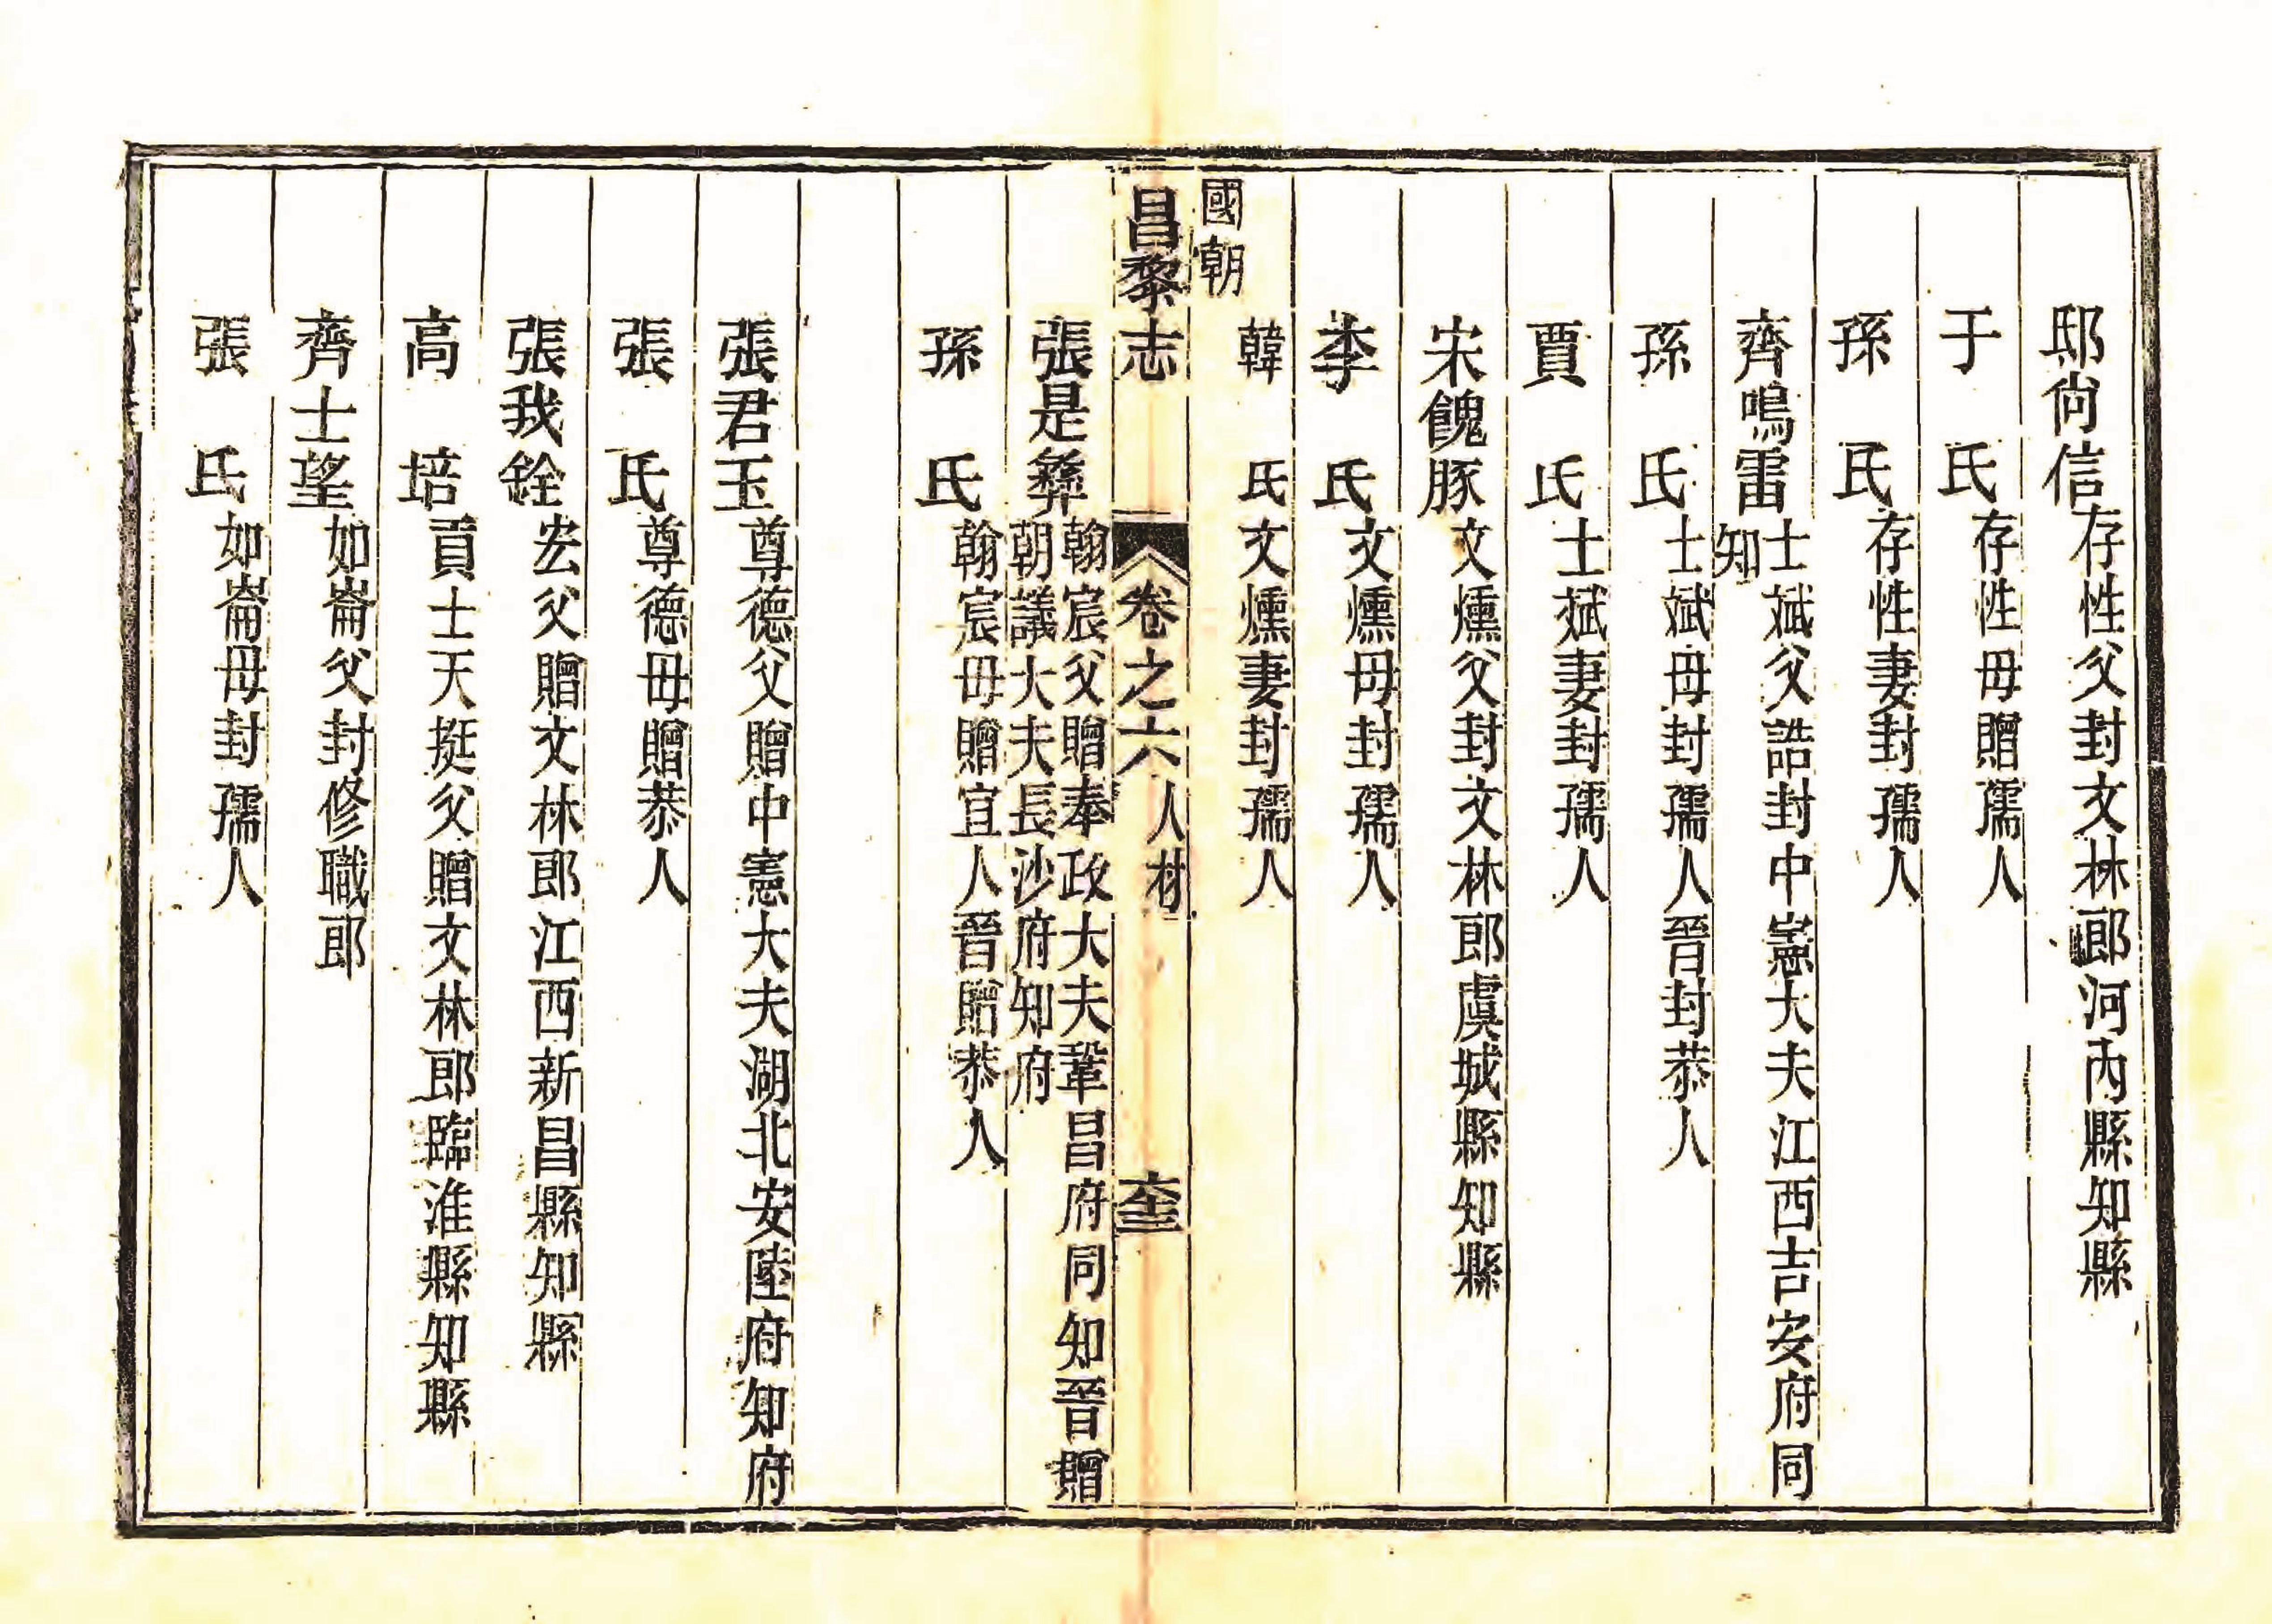 邸尙信存性父封文林郎河內縣知縣
于氏存性母贈孺人
孫氏存性妻封孺人
齊鳴雷士斌父誥封中憲大夫江西吉安府同
知
孫氏士斌母封孺人晉封恭人
賈氏士斌妻封孺人
宋餽豚文燻父封文林郎虞城縣知縣
李氏文燻母封孺人
韓氏文燻妻封孺人
國朝
昌黎志 卷之六 人材 六十三
張是彝翰宸父贈奉政大夫鞏昌府同知晉贈
朝議大夫長沙府知府
孫氏翰宸母贈宜人晉贈恭人
張君玉尊德父贈中憲大夫湖北安陸府知府
張氏尊德母贈恭人
張我銓宏父贈文林郎江西新昌縣知縣
高培貢士天挺父贈文林郎臨淮縣知縣
齊士望如崙父封修職郎
張氏如崙母封孺人